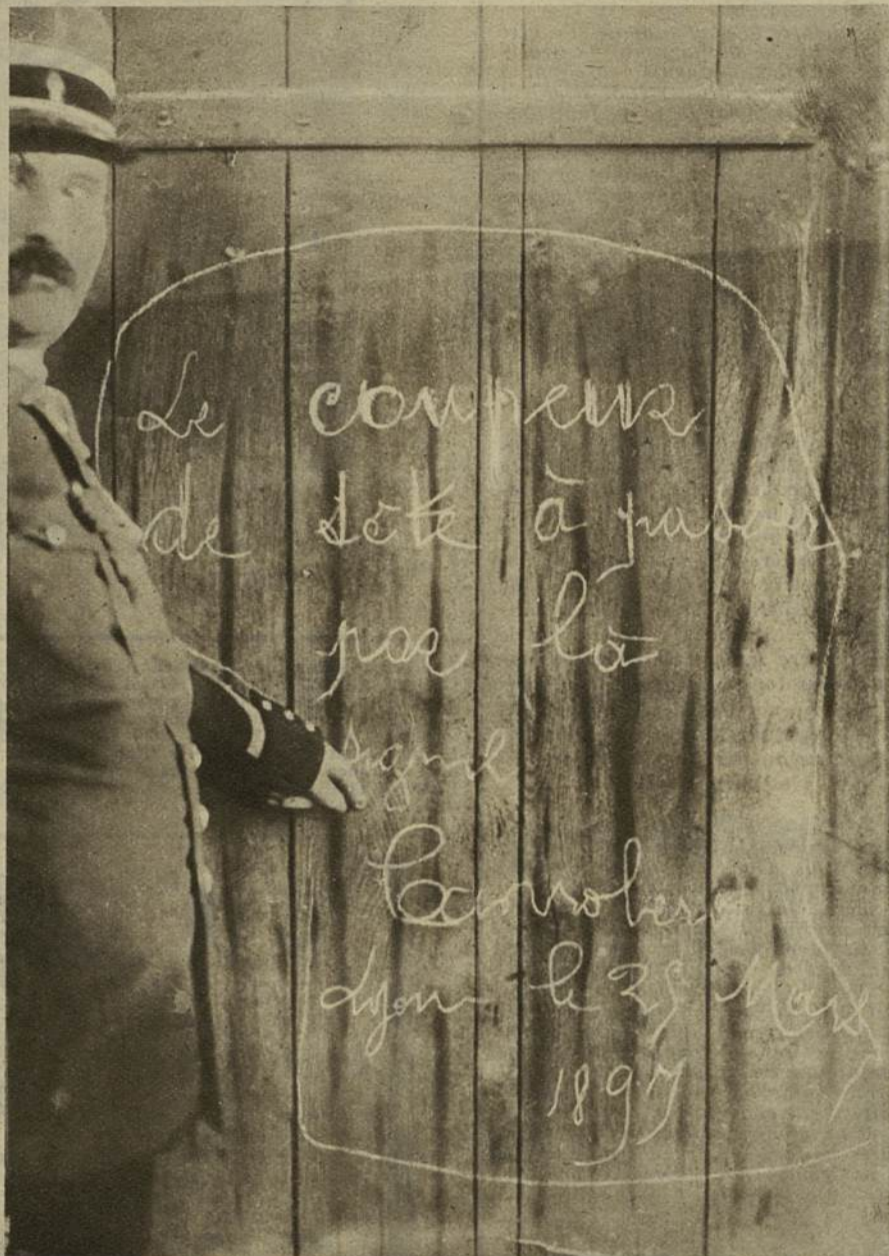 Le coupeur
de tête à passer
par là
signé
Lyon le 25 Mars
1897